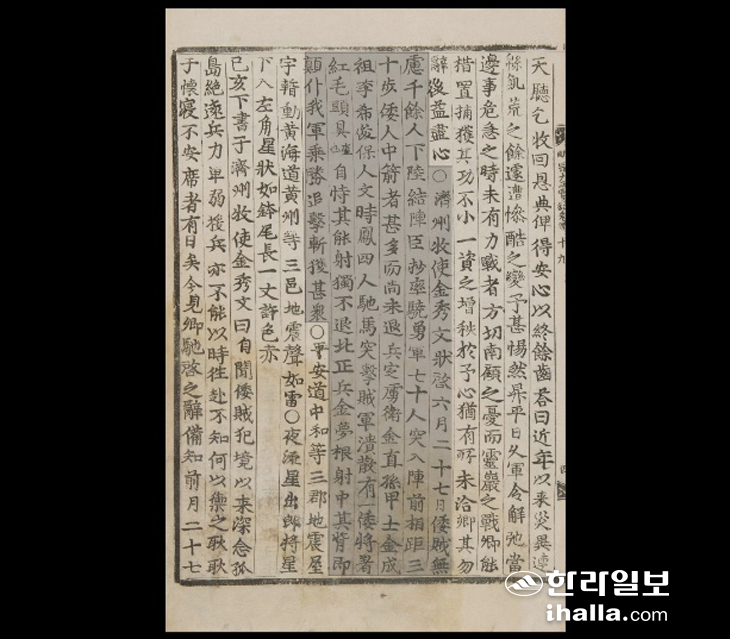 天聽乞收回恩典俾得安心以終餘齒答曰近年以来災異連
緜飢荒之餘遽遭慘酷之變予甚惕然昇平日久軍令解弛當
邊事危急之時未有力戰者方切南顧之憂而靈巖之戰卿能
措置捕獲其功不小一資之增秩於予心猶有所未洽卿其勿
辭後益盡心○濟州牧使金秀文狀啓六月二十七日倭賊無
慮千餘人下陸結陣臣抄率驍勇軍七十人突入陣前相距三
十步倭人中箭者甚多而尚未退兵定虜衛金直孫甲士金成
祖李希俊保人文時鳳四人馳馬突擊賊軍潰散有一倭將署
紅毛頭具也自恃其能射獨不退北正兵金夢根射中其背即
顚仆我軍乘勝追擊斬獲甚衆○平安道中和等三郡地震屋
宇暫動黃海道黃州等三邑地震聲如雷○夜流星出郎將星
下入左角星狀如鉢尾長一丈許色赤
己亥下書于濟州牧使金秀文曰自聞倭賊犯境以来深念孤
島絶遠兵力單弱援兵亦不能以時徃赴不知何以禦之耿耿
于懷寢不安席者有日矣今見卿馳啓之辭備知前月二十七
한라일보
ihalla.com